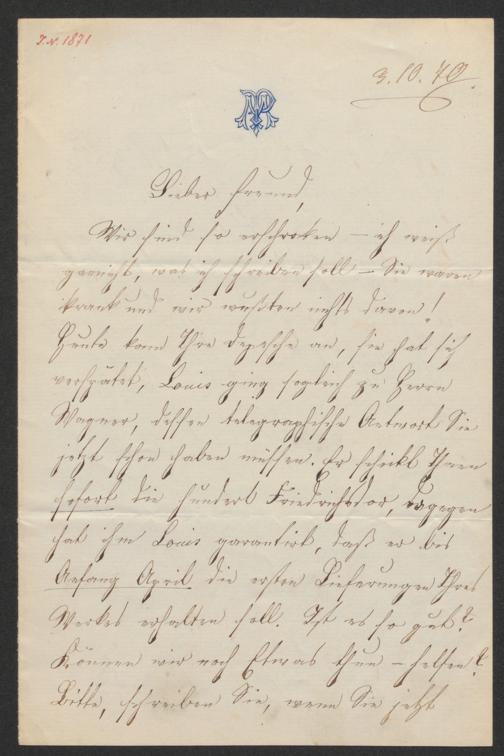 J.N. 1871
3.10.70.
Lieber Freund,
Wir sind so erschrocken – ich weiß
garnicht, was ich schreiben soll – Sie waren
krank und wir wußten nichts davon!
Heute kam Ihre Depesche an, sie hat sich
verspätet, Louis ging sogleich zu Herrn
Wagner, dessen telegraphische Antwort Sie
jetzt schon haben müssen. Er schickt Ihnen
sofort die hundert Friedrichsdor, dagegen
hat ihm Louis garantirt, daß er bis
Anfang April die ersten Lieferungen Ihres
Werkes erhalten soll. Ist es so gut?
Können wir noch Etwas thun – helfen?
Bitte, schreiben Sie, wenn Sie jetzt